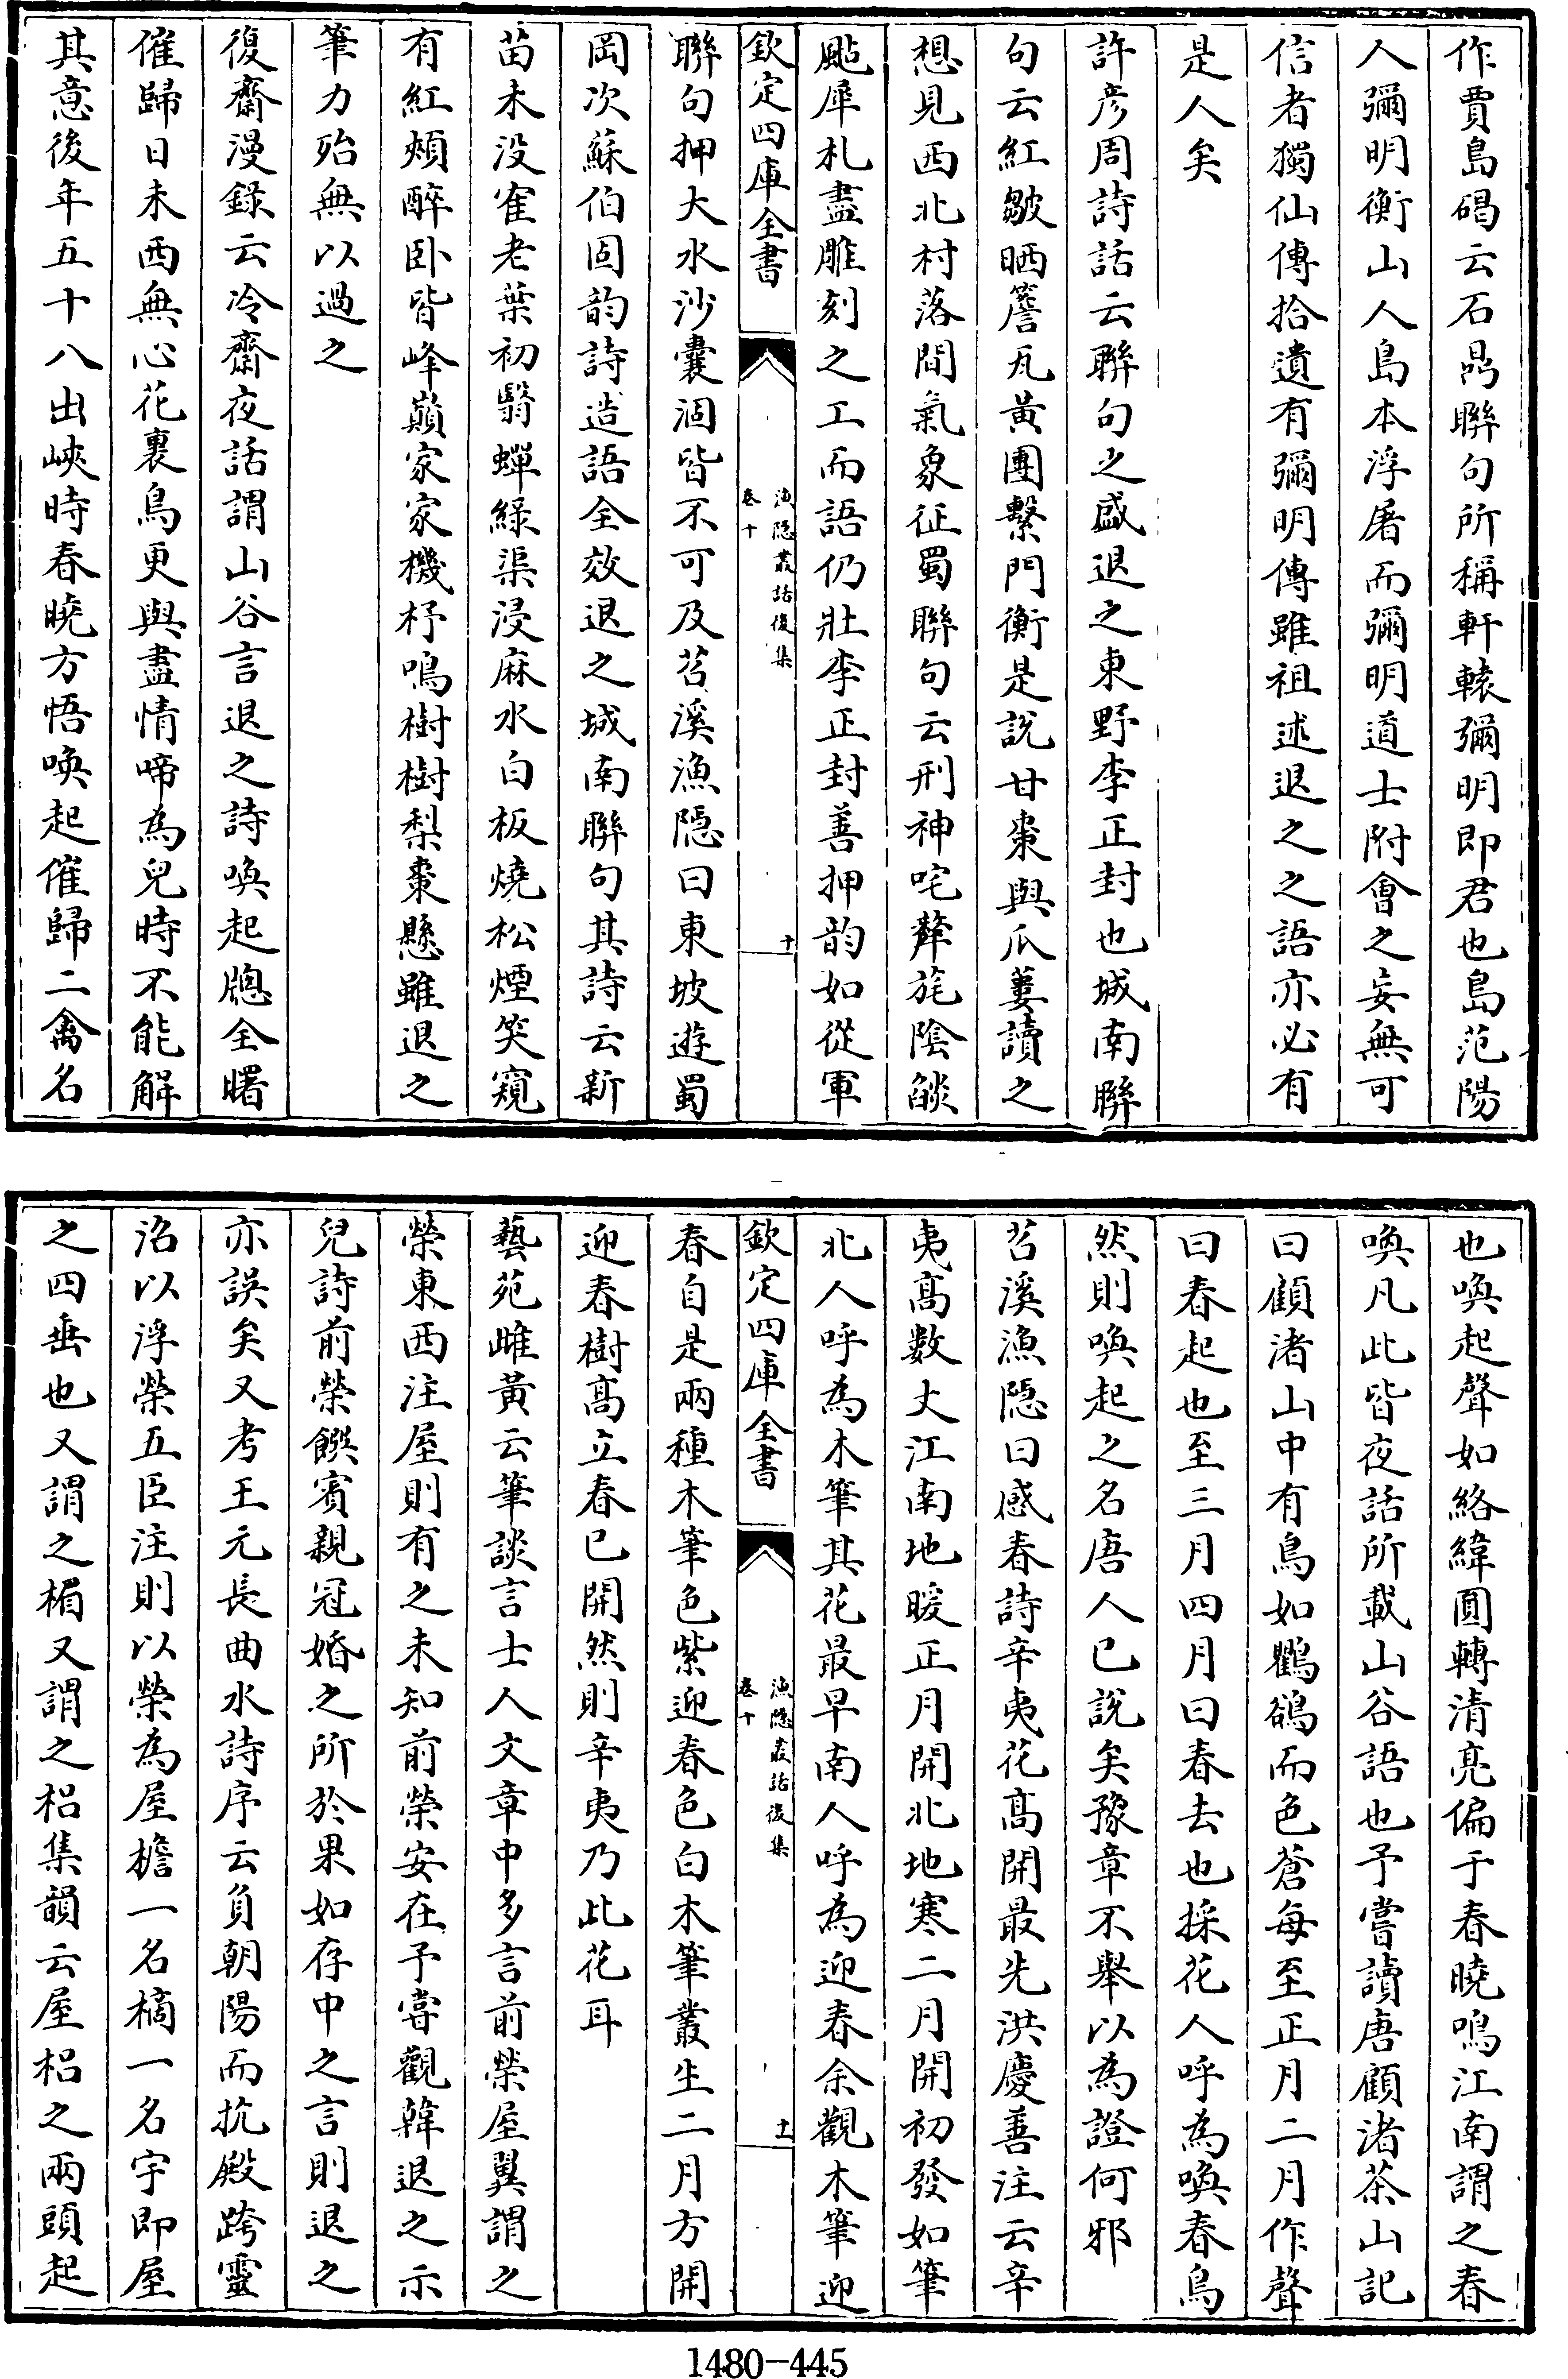 作賈島碣云石鼎聯句所稱軒轅彌明即君也島范陽
人彌明衡山人島本浮屠而彌明道士附會之妄無可
信者獨仙傳拾遺有彌明傳雖祖述退之之語亦必有
是人矣
許彦周詩話云聯句之盛退之東野李正封也城南聯
句云紅皺晒簷瓦黄團繫門衡是說甘棗與瓜蔞讀之
想見西北村落間氣象征蜀聯句云刑神咤犛旄陰燄
颭犀札盡雕刻之工而語仍壯李正封善押韵如從軍
欽定四庫全書
漁隱叢話後集
卷十
十
聯句押大水沙囊涸皆不可及苕溪漁隱曰東坡遊蜀
岡次蘇伯固韵詩造語全效退之城南聯句其詩云新
苗未没隺老葉初翳蟬綠渠浸麻水白板燒松煙笑窺
有紅頰醉卧皆峰巔家家機杼鳴樹樹梨棗懸雖退之
筆力殆無以過之
復齋漫錄云冷齋夜話謂山谷言退之詩喚起牕全曙
催歸日未西無心花裏鳥更與盡情啼為兒時不能解
其意後年五十八出峽時春曉方悟喚起催歸二禽名
也喚起聲如絡緯圓轉清亮偏于春曉鳴江南謂之春
喚凡此皆夜話所載山谷語也予嘗讀唐顧渚茶山記
曰顧渚山中有鳥如鸜鵒而色蒼每至正月二月作聲
曰春起也至三月四月曰春去也採花人呼為喚春鳥
然則喚起之名唐人已說矣豫章不舉以為證何邪
苕溪漁隱曰感春詩辛夷花髙開最先洪慶善注云辛
夷髙數丈江南地暖正月開北地寒二月開初發如筆
北人呼為木筆其花最早南人呼為迎春余觀木筆迎
欽定四庫全書
漁隱叢話後集
卷十
十一
春自是兩種木筆色紫迎春色白木筆叢生二月方開
迎春樹髙立春已開然則辛夷乃此花耳
藝苑雌黄云筆談言士人文章中多言前榮屋翼謂之
榮東西注屋則有之未知前榮安在予甞觀韓退之示
兒詩前榮饌賓親冠婚之所於果如存中之言則退之
亦誤矣又考王元長曲水詩序云負朝陽而抗殿跨靈
沼以浮榮五臣注則以榮為屋檐一名樀一名宇即屋
之四垂也又謂之楣又謂之梠集韻云屋梠之兩頭起
1480-445